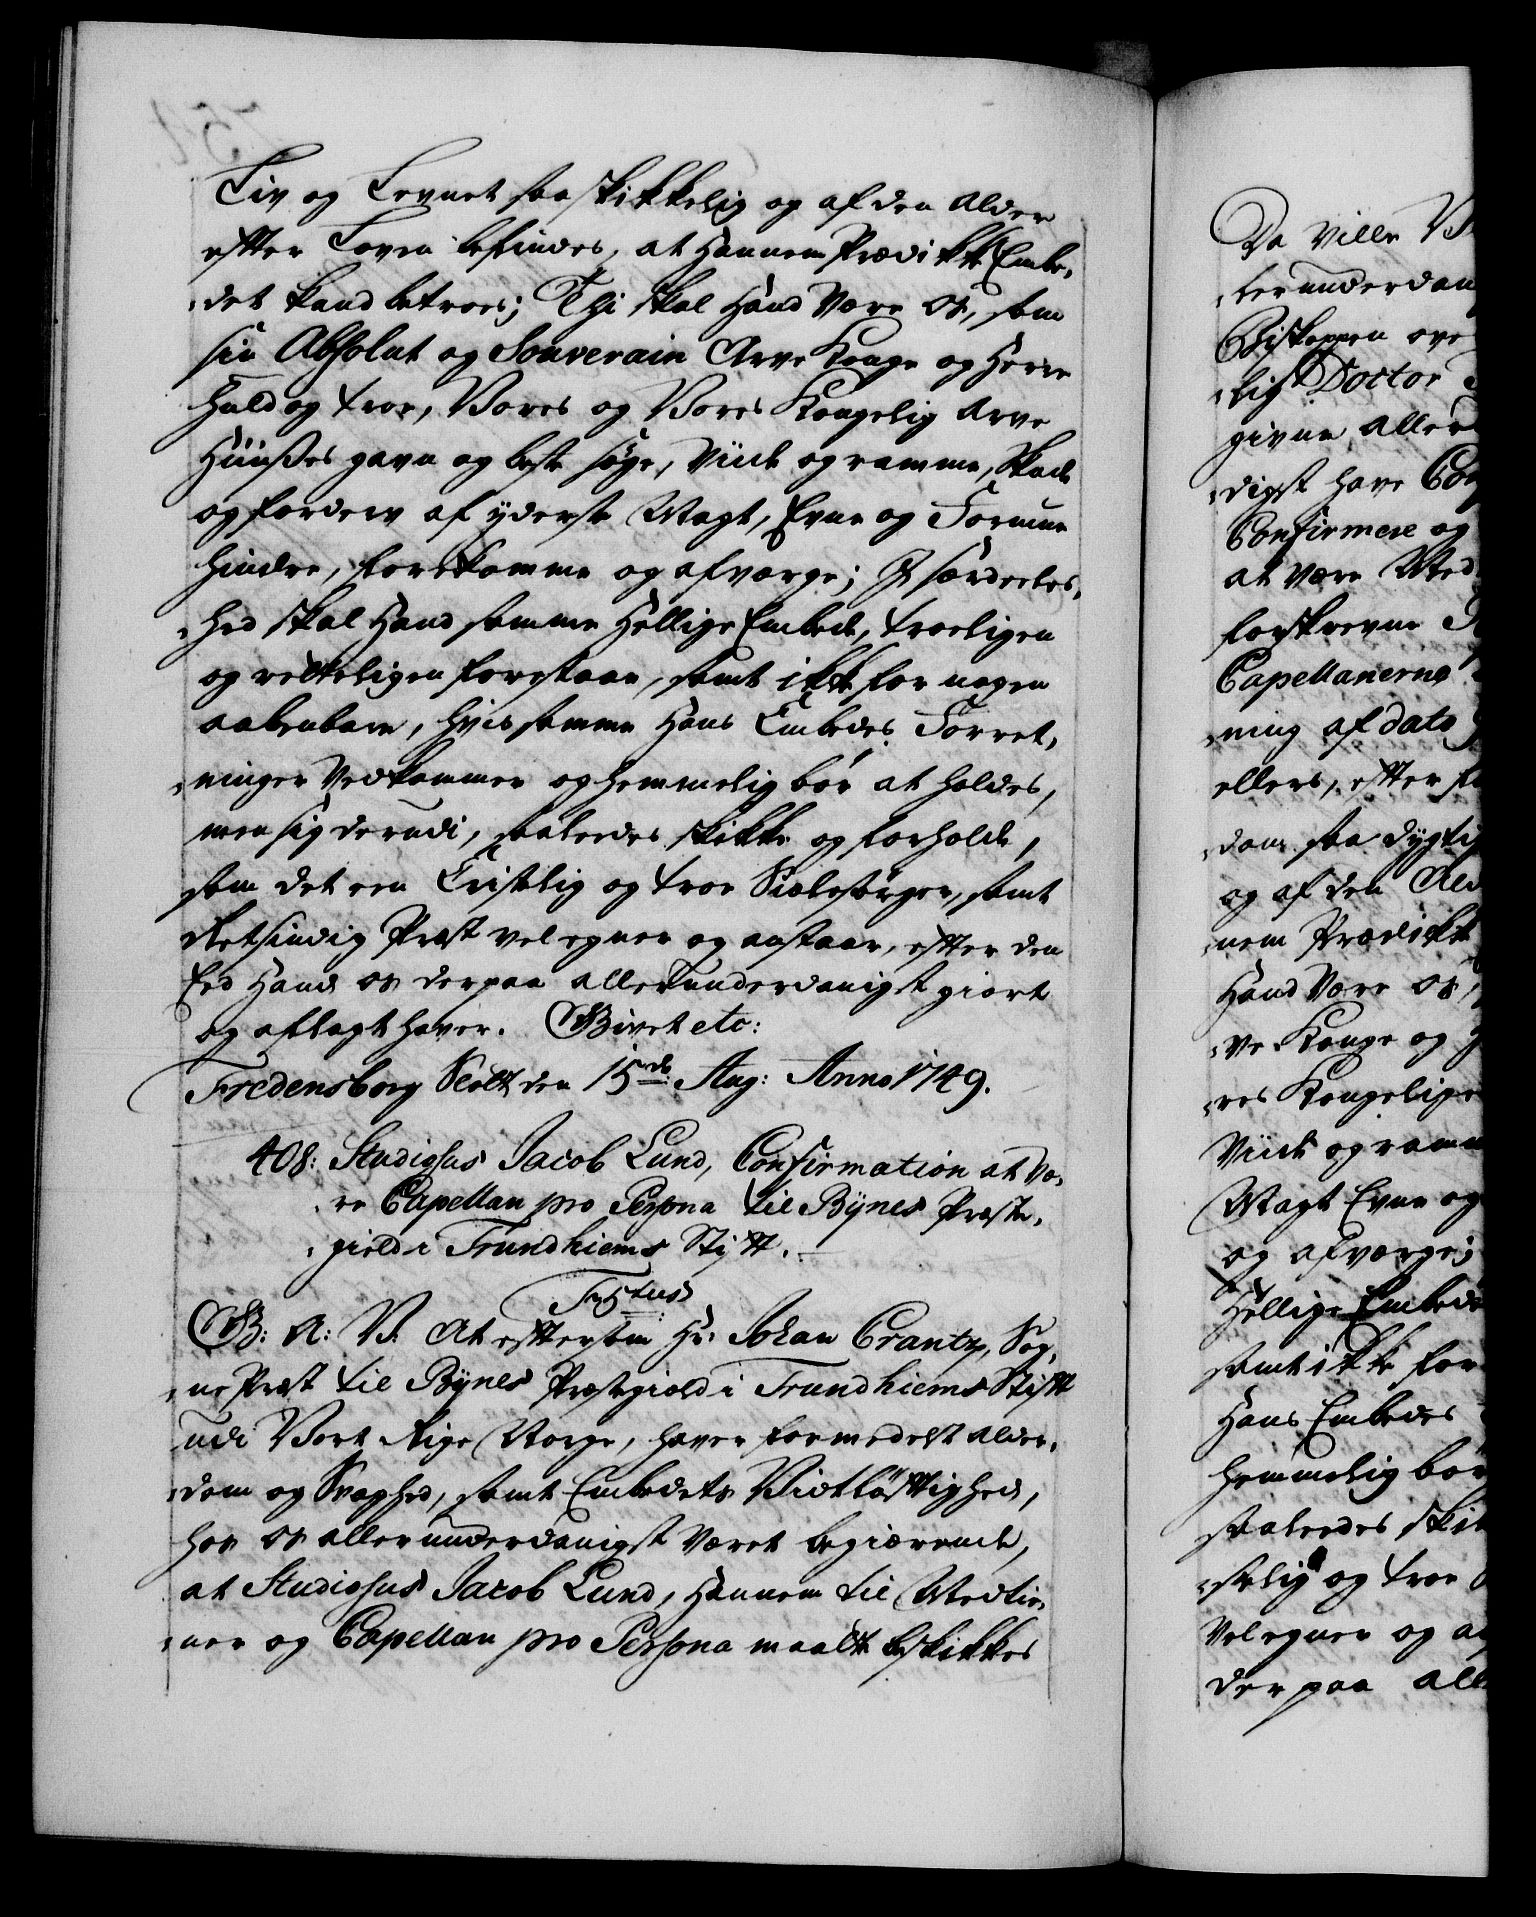 Liv og Levnet saa skikkelig og af den Alder
efter Loven befindes, at Hannem Prædikke Embe,
,det kand betroes; Thi skal Hand Være Os, som
sin Absolut og Souverain Arve Konge og Herre
Huld og troe, Vores og Vores Kongelig Arve
Huuses gavn og beste søge, Viide og ramme, Skade
og forderv af yderste Magt, Evne og Formue
hindre, forekomme og afværge; I særdeeles,
,hed skal Hand samme Hellige Embede, troeligen
og retteligen forestaae, samt ikke for nogen
aabenbare, hvis samme Hans Embedes Forret,
,ninger Vedkommer og hemmelig bør at holdes,
men sig derudi, saaledes skikke og forholde,
som det een Cristelig og troe Siælesørger, samt
Retsindig Præst vel egner og anstaar, efter den
Eed Hand Os derpaa allerunderdanigst giort
og aflagt haver. Givet etc:
Fredensborg Slott den 15de Aug: Anno 1749.
408: Studiosus Jacob Lund, Confirmation at Væ,
,re Capellan pro Persona til Bynes Præste,
,gield i Trundhiems Stift.
F 5tus
G: A: V: At eftersom Hr: Johan Crantz, Sog,
,ne Præst til Bynes Præstegield i Trundhiems Stift
udi Vort Rige Norge, haver formedelst Alder,
,dom og Svaghed, samt Embedets Vidtløftighed,
hos Os allerunderdanigst Været begiærende,
at Studiosus Jacob Lund, Hannem til Medtie,
,ner og Capellan pro Persona maatte beskikkes
Da Ville
,lerunderdan
Biskoppen ove
,lig Doctor
givne aller
,digst have
Confirmere og
at Være Med
forskrevne
Capellanerne
,ning af dato
ellers, efter
,dom saa dygti
og af den Al
,nem Prædikke
Hand Være Os,
,ve Konge og
,res Kongelige
Viide og ramm
Magt Evne og
og afværge;
Hellige Embede
samt ikke for
Hans Embedes
hemmelig bør
saaledes skik
,stelig og troe
Vel egner og a
derpaa all